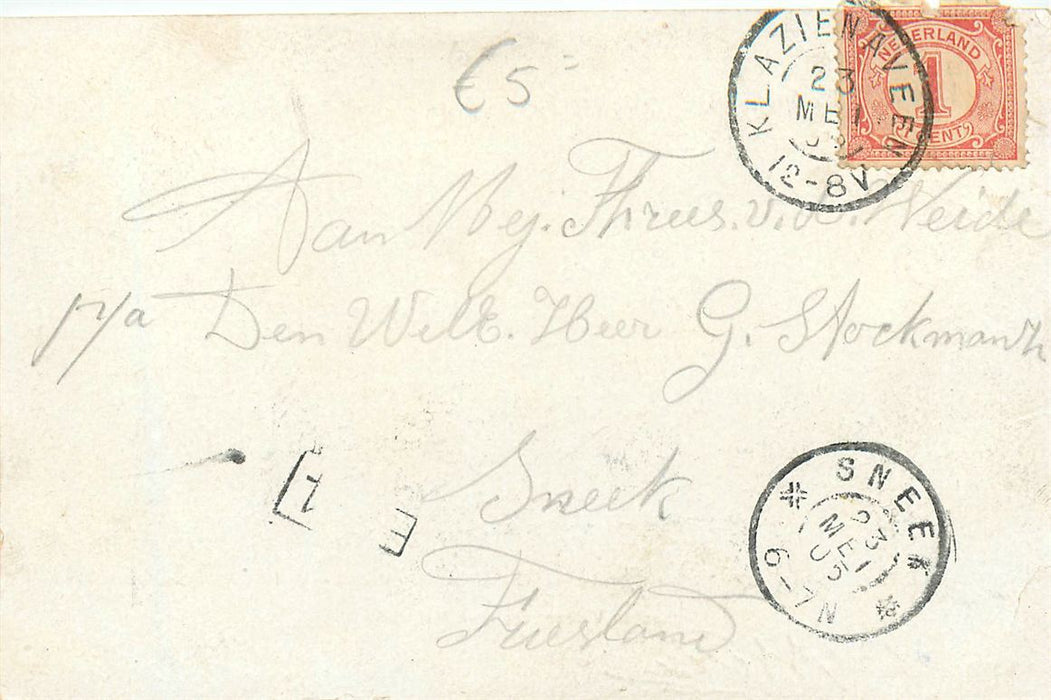 € 5 =
KLAZIENAVEEN
23
MEI
12-8V
NEDERLAND
1
CENT
Aan Mej. Threes. v. d. Weide
p/a Den WelE. Heer G. Stockmanth
1
E
Sneek
Friesland
SNEEK
23
MEI
05
6-7N